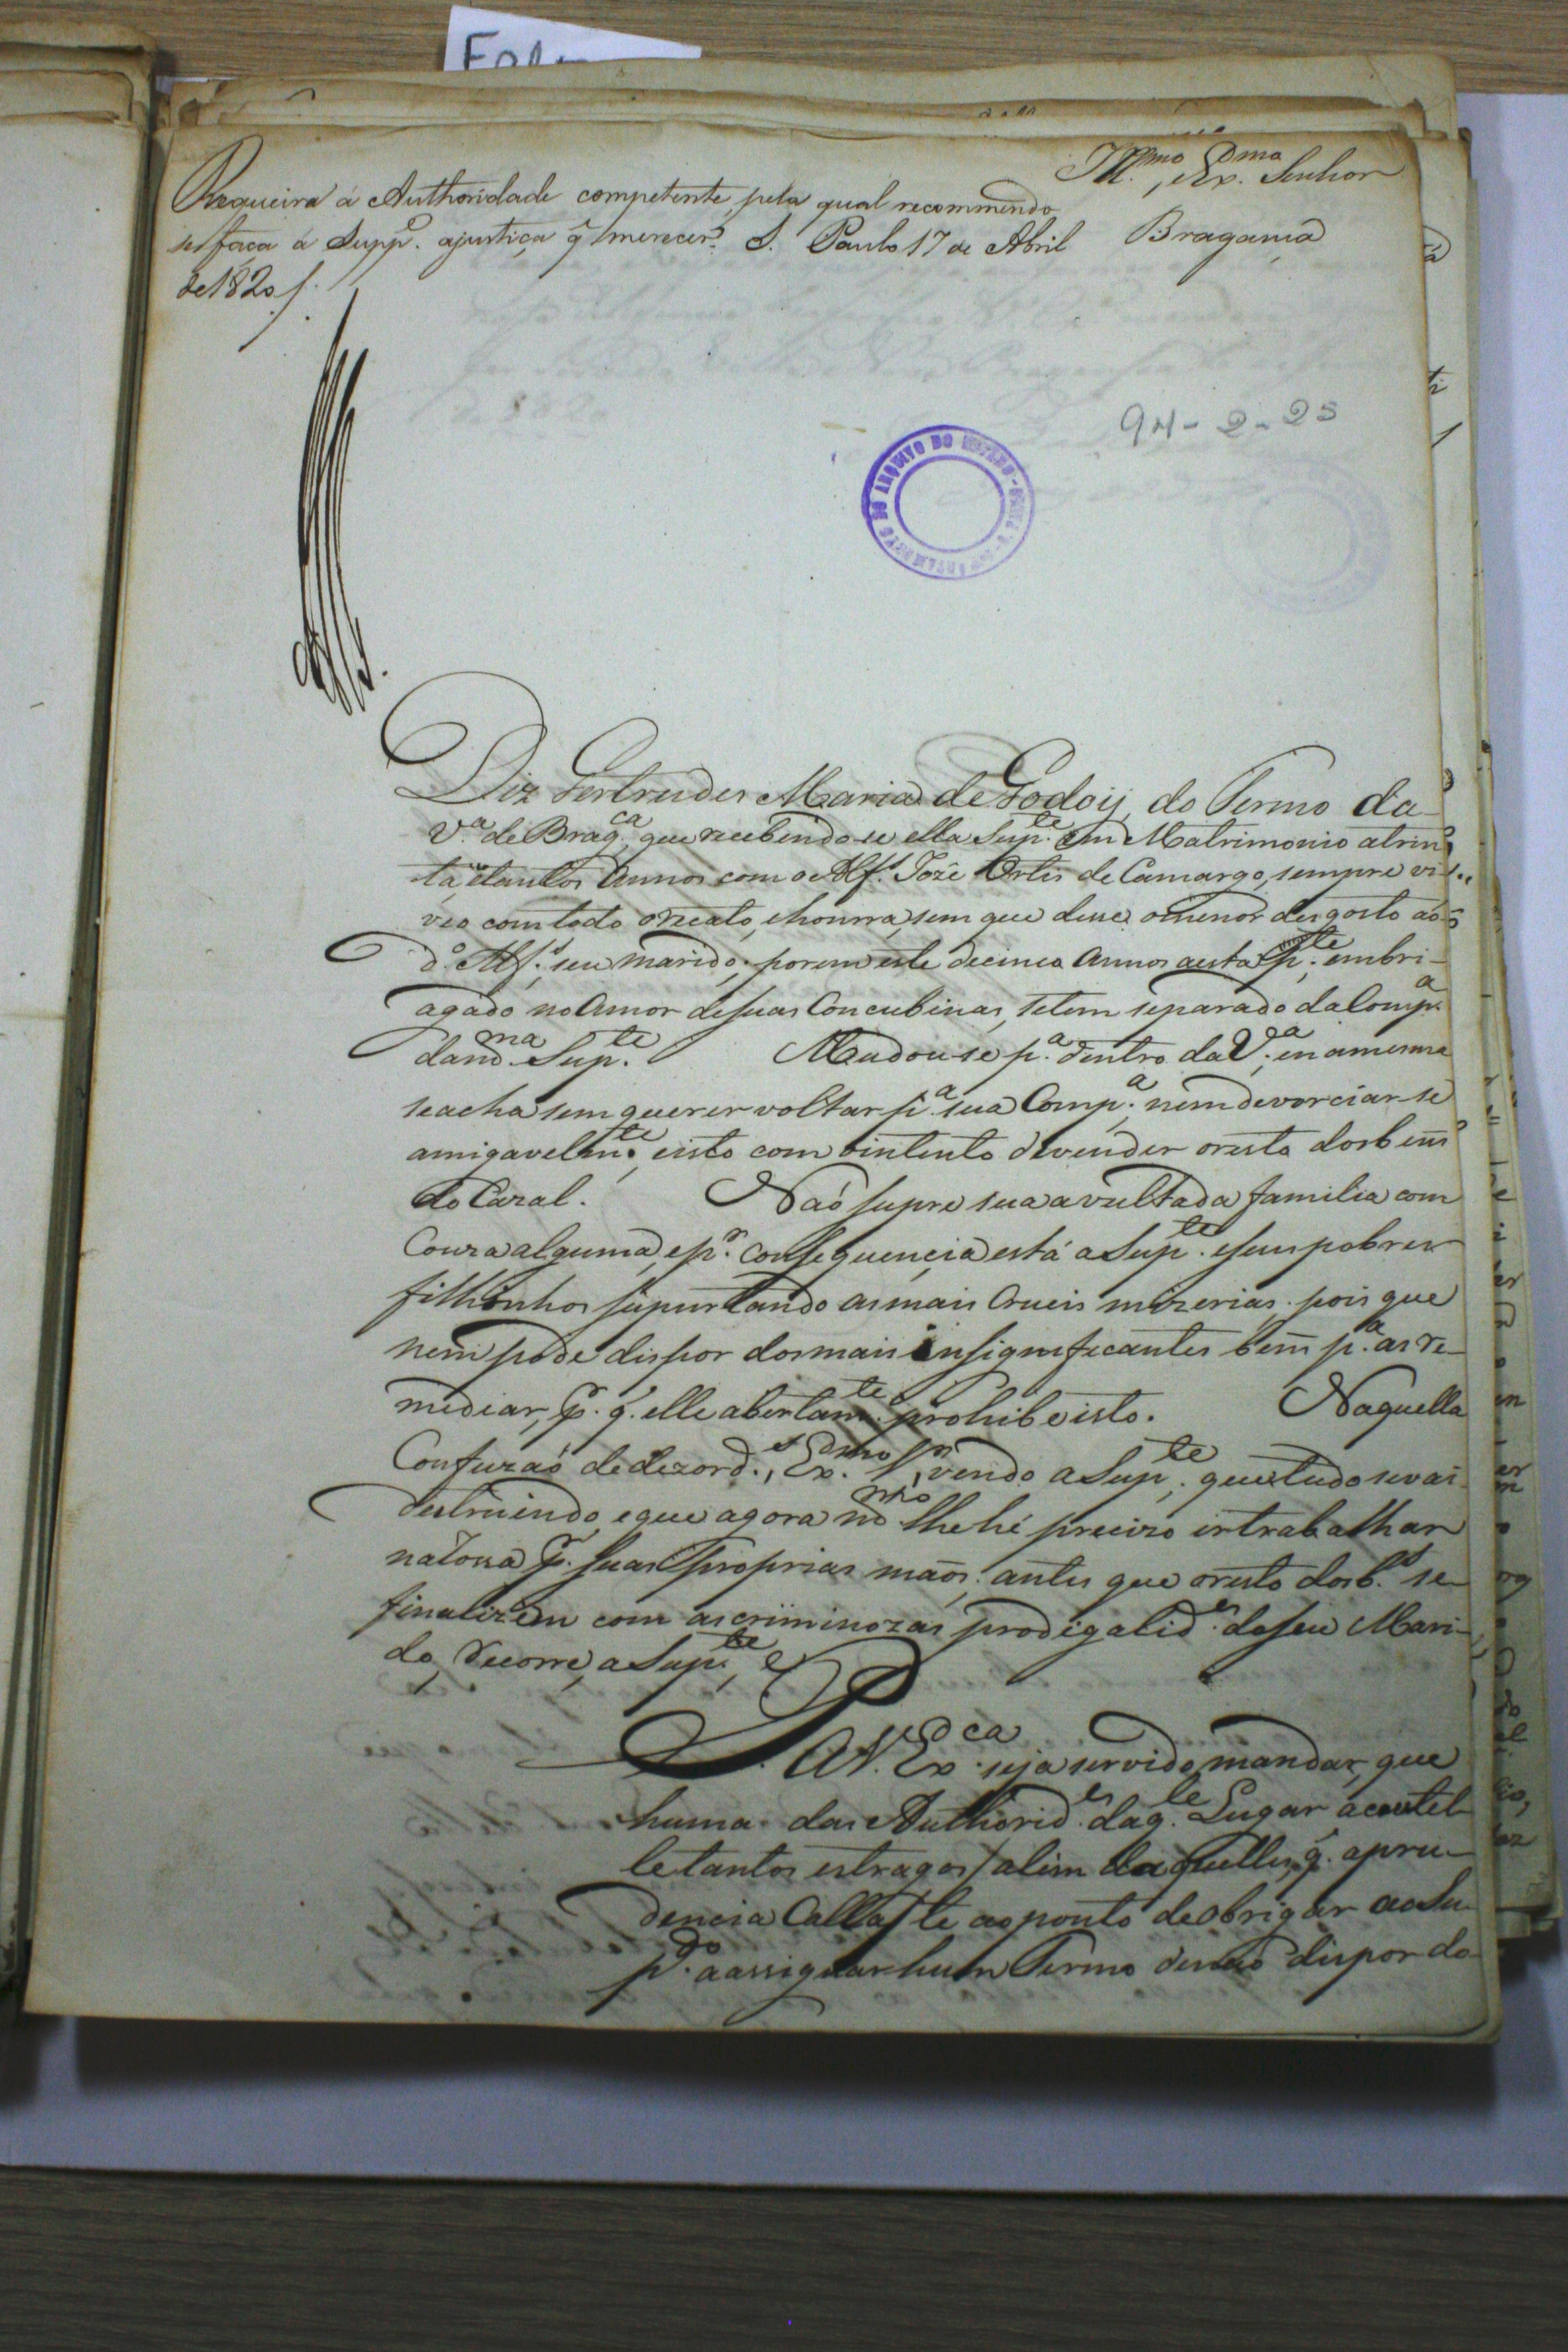 Ill.mo, Ex.mo Senhor
Requeira á Authoridade competente, pela qual recommendo
se faça á Supp.e ajustiça q̃ merecer. S. Paulo 17 de Abril
de 1820.
Bragança
94-2-25
Diz Gertrudes Maria de Godoij, do Termo da
V.a de Brag.ca, que recebendo-se ella Sup.te em Matrimonio atrin
ta, etantos Annos com o Alf.s Jozé Ortis de Camargo, sempre vi-
veo comtodo orecato, ehonra, sem que desse omenor desgosto ao
d.o Alf.s seu marido; porem este decinco Annos aesta p.te embri-
agado no Amor desuas Concubinas, setem separado daComp.a
dam.ma Sup.te Mudou-se p.a dentro daV.a, enamesma
seacha sem querer voltar p.a sua Comp.a, nem devorciar-se
amigavelm.te, eisto com ointento devender oresto dosbens
do Cazal. Naõ supre sua avultada familia com
Couza alguma, ep.r consequencia está aSup.te eseus pobres
filhinhos supurtando asmais Crueis mizerias, pois que
nem pode dispor dosmais insignificantes bens p.a as re-
mediar, p.r q. elle abertam.te prohibe isto. Naquella
Confuzaõ dedezord.s, Ex.mo S.r, vendo aSup.te que tudo sevai
destruindo, eque agora m.mo lhehé precizo irtrabalhar
naRossa p.r suas proprias maõs; antes que oresto dosb.s se
finalizem com ascriminozas prodigalid.es deseu Mari-
do, recorre, aSup.te,
P. AV. Ex.ca seja servido mandar, que
huma das Authorid.es daq.le Lugar acautel-
letantos estragos/alem daquelles, q. apru-
dencia Calla/te aoponto deobrigar aoSu-
p.do aassignar hum Termo denaõ dispor do